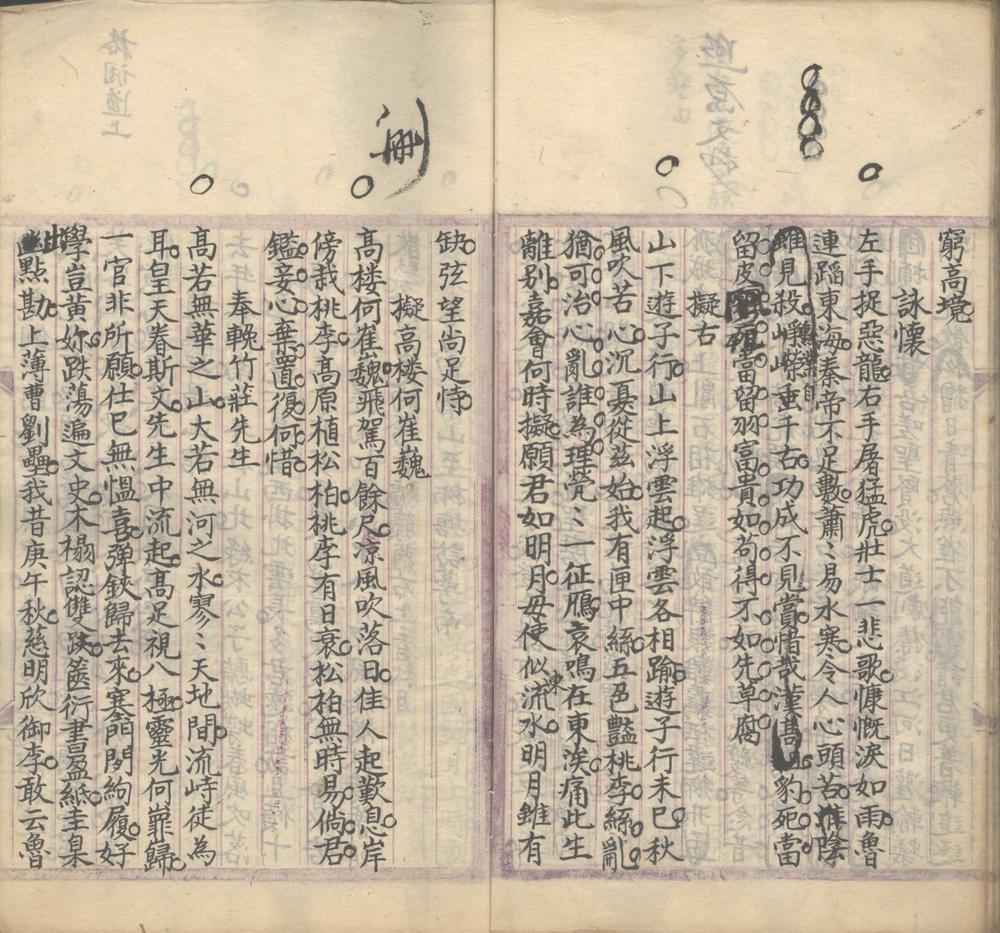 窮高境
詠懷
左手捉惡龍右手屠猛虎壯士一悲歌慷慨淚如雨魯
連蹈東海秦帝不足數蕭〻易水寒令人心頭苦淮陰
雖見殺崢嶸重千古功成不見賞惜哉漢雋豹死當
留皮當留羽富貴如苟得不如先草腐
擬古
山下遊子行山上浮雲起浮雲各相踰遊子行未已秋
風吹苦心沉憂從茲始我有匣中絲五色豔桃李絲亂
猶可治心亂誰為理煢〻一征鴈哀鳴在東涘痛此生
離別嘉會何時擬願君如明月毋使似流水明月雖有
東
缺弦望尚足恃
刪
擬高樓何崔巍
高樓何崔巍飛駕百餘尺涼風吹落日佳人起歎息岸
傍栽桃李高原植松柏桃李有日衰松柏無時易倘君
鑑妾心棄置復何惜
奉輓竹莊先生
高若無華之山大若無河之水寥〻天地間流峙徒為
耳皇天眷斯文先生中流起高足視八極靈光何巋歸
一官非所願仕已無慍喜彈鋏歸去來寒簡閱絇履好
學豈黃妳跌蕩遍文史木榻認雙趺篋衍書盈紙圭臬
出點勘上薄曹劉壘我昔庚午秋慈明欣御李敢云魯